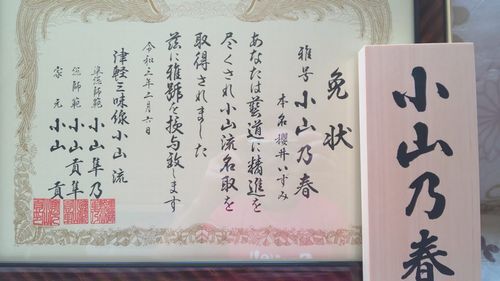 免状
雅号 小山乃春
本名 櫻井いずみ
あなたは藝道に精進を
尽くされ小山流名取を
取得されました
茲に雅號を授与致します
令和三年二月六日
津軽三味線小山流
小山隼乃
師範 小山貢隼
家元 小山 貢
小山乃春